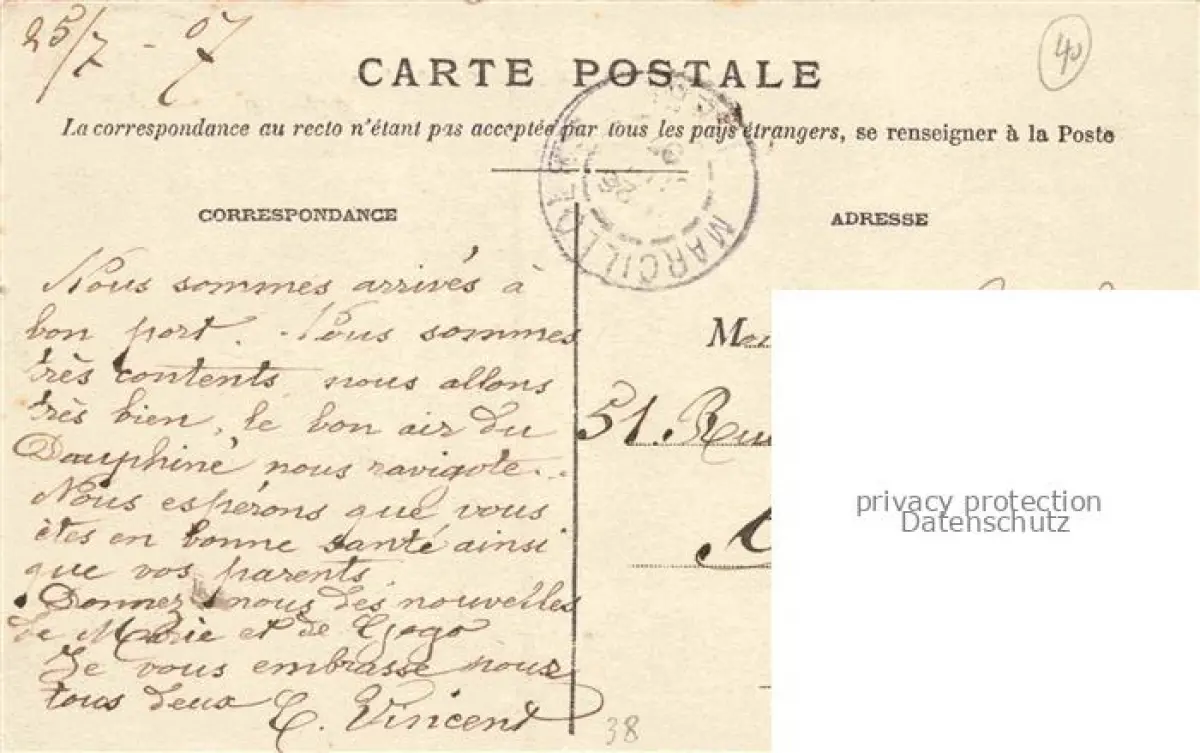 25/7 - 07
40
CARTE POSTALE
La correspondance au recto n'étant pas acceptée par tous les pays étrangers, se renseigner à la Poste
MARCILLO
CORRESPONDANCE
ADRESSE
Nous sommes arrivés à
bon port. Nous sommes
très contents nous allons
très bien, le bon air du
Dauphiné nous ravigote..
Nous espérons que vous
êtes en bonne santé ainsi
que vos parents.
Donnez nous des nouvelles
de Marie et de Gogo
Je vous embrasse pour
tous deux C. Vincent
M
51. Rue
privacy protection
Datenschutz
38